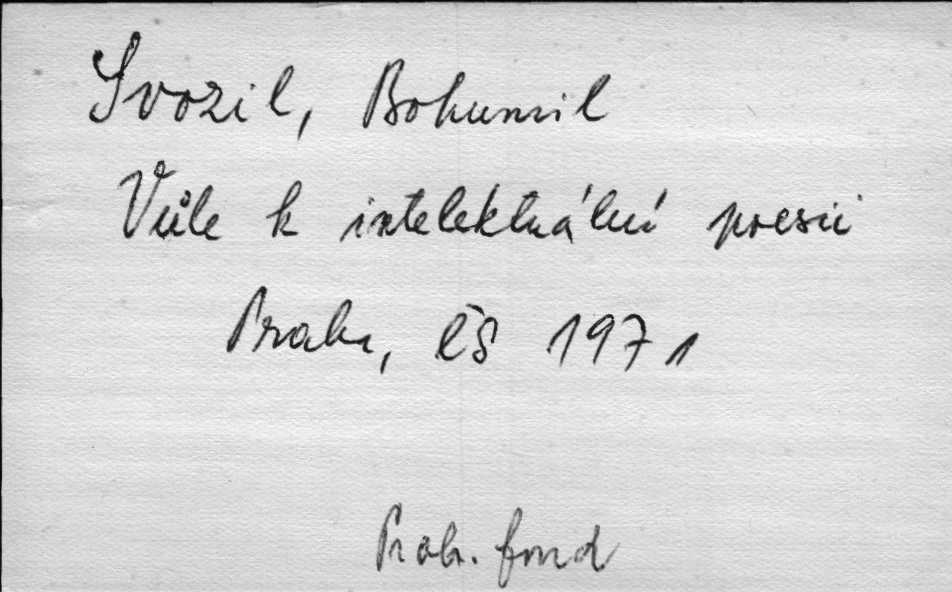 Svozil, Bohumil
Vůle k intelektuální poesii
Praha, ČS 1971
Prac. fond